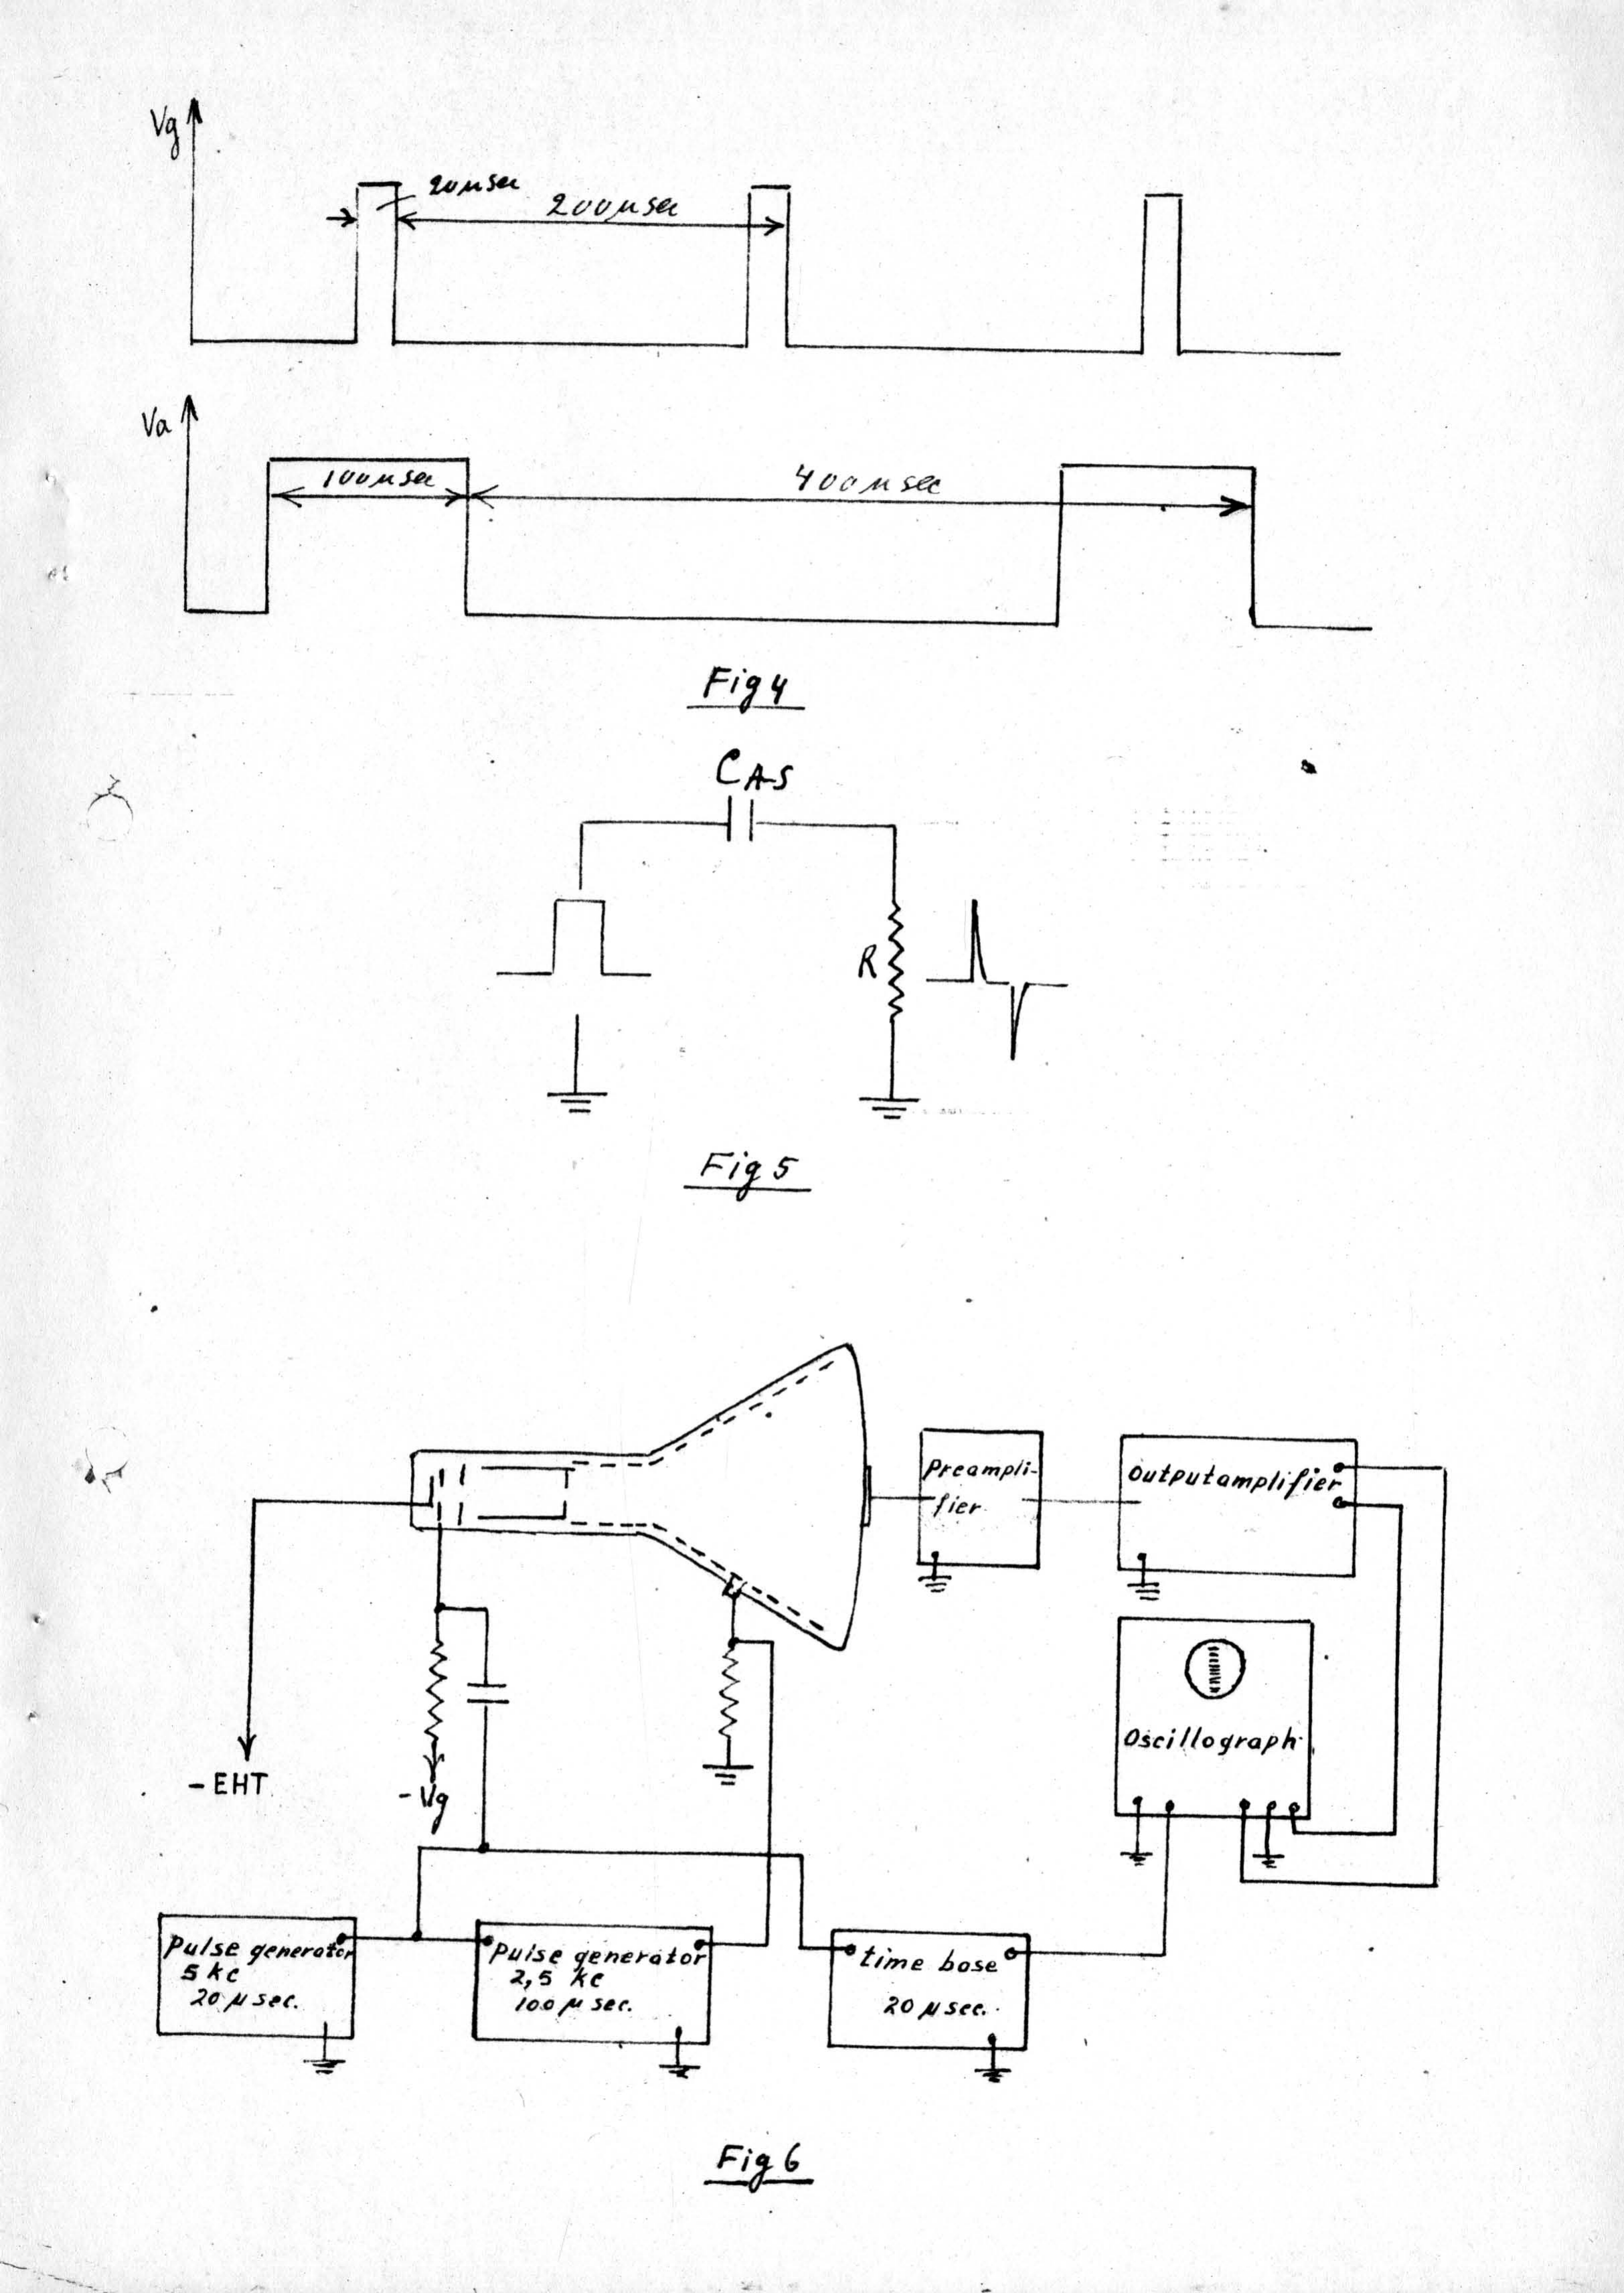 Vg
20 μsec
200 μsec
Va
100 μsec
400 μsec
Fig 4
CA-S
R
Fig 5
Preampli-
fier
Outputamplifier
Oscillograph
- EHT
- Vg
Pulse generator
5 kc
20 μ sec.
Pulse generator
2,5 kc
100 μ sec.
time base
20 μ sec.
Fig 6